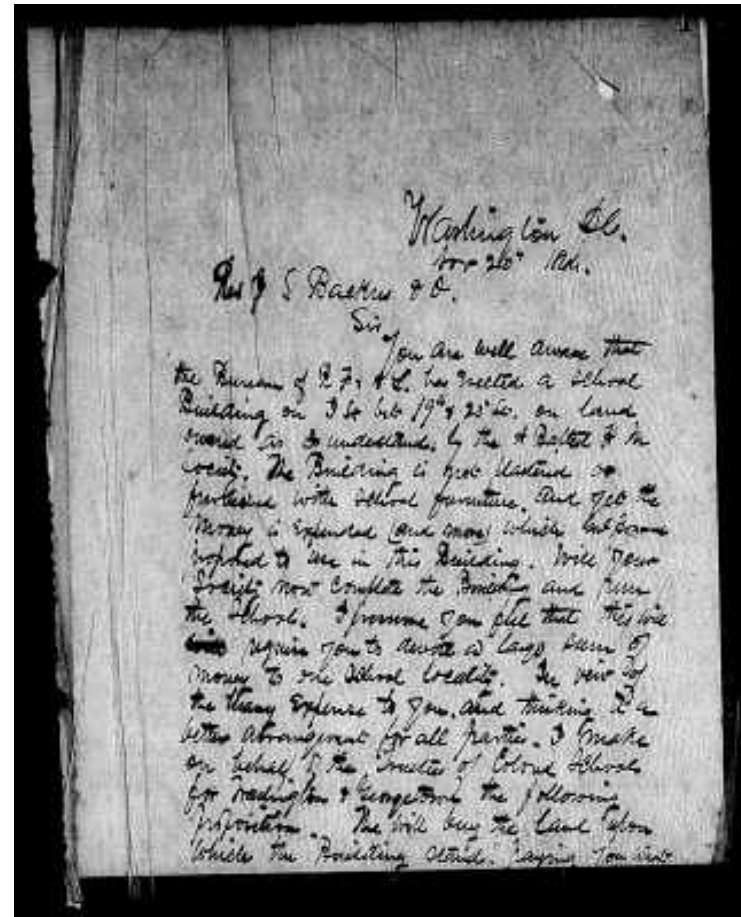 Washington DC.
Nov 20th
Rev J S Backus & O.
Sir
You are well aware that
the Bureau of R. F. & A. L. has erected a School
Building on I St bet 19th & 20th. on land
owned as I understand, by the A Baptst H M
Society. The Building is not plastered or
furnished with School furniture. And yet the
Money is Expended (and more) which
proposed to use in this Building. Will your
Society now complete the Building and run
the Schools. I presume you feel that this will
require you to devote a large sum of
Money to one School locality. In view of
the Heavy Expense to you, and thinking it a
better arrangement for all parties. I make
on behalf of the Trustees of Colored Schools
for Washington & Georgetown the following
proposition. We will buy the land upon
which the Building stands. Paying you